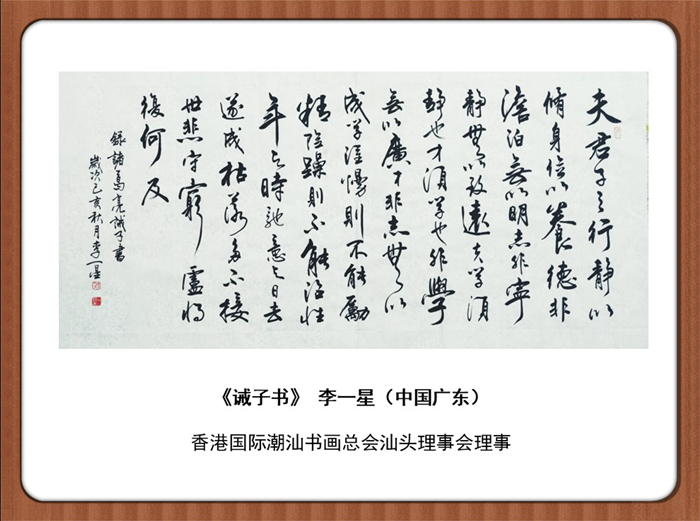 夫君子之行静以
脩身俭以養德非
澹泊無以明志非寧
静無以致遠夫学须
静也才须学也非學
無以廣才非志無以
成学淫慢則不能勵
精险躁則不能治性
年与時馳意与日去
遂成枯落多不接
世悲守窮廬将
復何及
録諸葛亮誡子書
歲次己亥秋月李一星
《诫子书》 李一星（中国广东）
香港国际潮汕书画总会汕头理事会理事